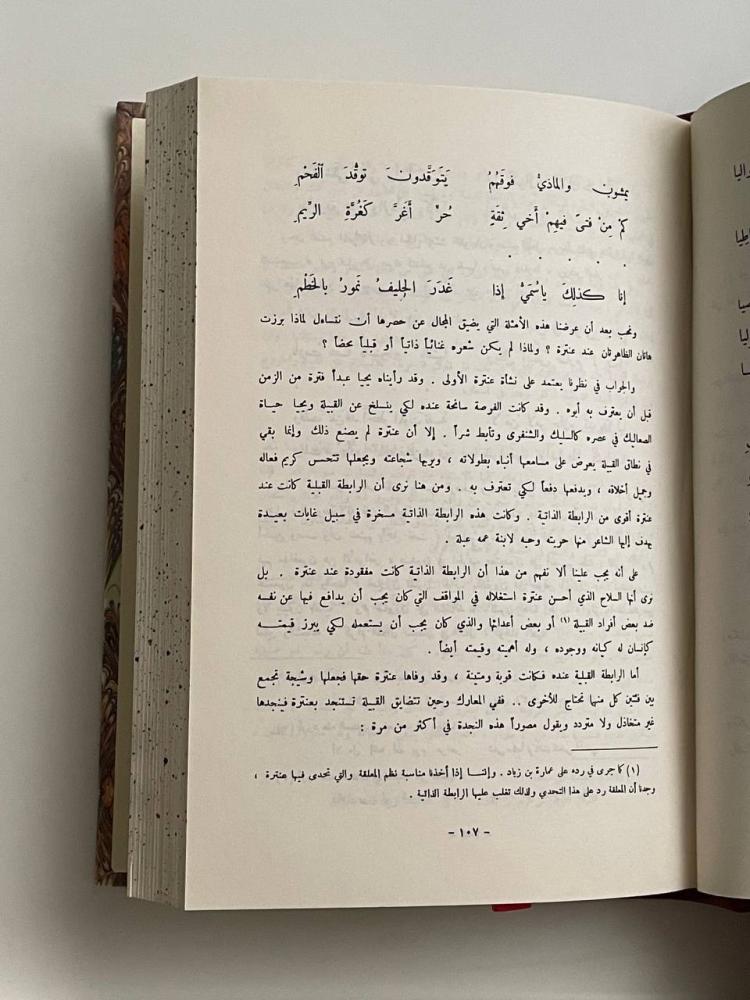 يمشون والماذيُّ فوقَهُمُ يَتَوَقَّدونَ توقُّدَ ٱلْفَحْمِ
كم مِنْ فتىً فيهِمْ أَخي ثِقَةٍ حُرٍّ أَغَرَّ كَغُرَّةِ الرِّيمِ
. . . . . .
إنا كذلِكَ ياسُمَيُّ إذا غَدَرَ الحليفُ نَمورُ بالخَطْمِ
ونحب بعد أن عرضنا هذه الأمثلة التي يضيق المجال عن حصرها أن نتساءل لماذا برزت
هاتان الظاهرتان عند عنترة ؟ ولماذا لم يكن شعره غنائياً ذاتياً أو قبلياً محضاً ؟
والجواب في نظرنا يعتمد على نشأة عنترة الأولى . وقد رأيناه يحيا عبداً فترة من الزمن
قبل أن يعترف به أبوه . وقد كانت الفرصة سانحة عنده لكي ينسلخ عن القبيلة ويحيا حياة
الصعاليك في عصره كالسليك والشنفرى وتأبط شراً . إلا أن عنترة لم يصنع ذلك وإنما بقي
في نطاق القبيلة يعرض على مسامعها أنباء بطولاته ، ويريها شجاعته ويجعلها تتحسس كريم فعاله
وجميل أخلاقه ، ويدفعها دفعاً لكي تعترف به . ومن هنا نرى أن الرابطة القبلية كانت عند
عنترة أقوى من الرابطة الذاتية . وكانت هذه الرابطة الذاتية مسخرة في سبيل غايات بعيدة
يهدف إليها الشاعر منها حريته وحبه لابنة عمه عبلة .
على أنه يجب علينا ألا نفهم من هذا أن الرابطة الذاتية كانت مفقودة عند عنترة . بل
نرى أنها السلاح الذي أحسن عنترة استغلاله في المواقف التي كان يجب أن يدافع فيها عن نفسه
ضد بعض أفراد القبيلة (١) أو بعض أعدائها والذي كان يجب أن يستعمله لكي يبرز قيمته
كإنسان له كيانه ووجوده ، وله أهميته وقيمته أيضاً .
أما الرابطة القبلية عنده فكانت قوية ومتينة ، وقد وفاها عنترة حقها فجعلها وشيجة تجمع
بين فئتين كل منهما تحتاج للأخرى .. ففي المعارك وحين تتضايق القبيلة تستنجد بعنترة فينجدها
غير متخاذل ولا متردد ويقول مصوراً هذه النجدة في أكثر من مرة :
(١) كما جرى في رده على عمارة بن زياد . وإننا إذا أخذنا مناسبة نظم المعلقة والتي تحدى فيها عنترة ،
وجدنا أن المعلقة رد على هذا التحدي ولذلك تغلب عليها الرابطة الذاتية .
- ١٠٧ -